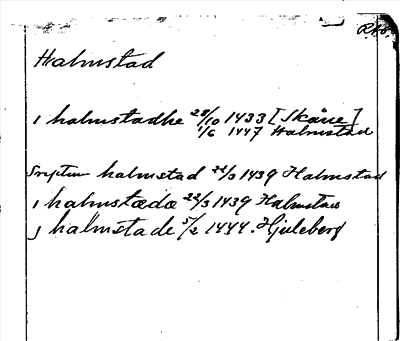 RAB.
Halmstad
i halmstadhe 28/10 1433 [Skåne]
1/6 1447 Halmstad
Scriptum halmstad 22/3 1439 Halmstad
i halmstædæ 22/3 1439 Halmstad
j halmstade 5/2 1444. Hjuleberg